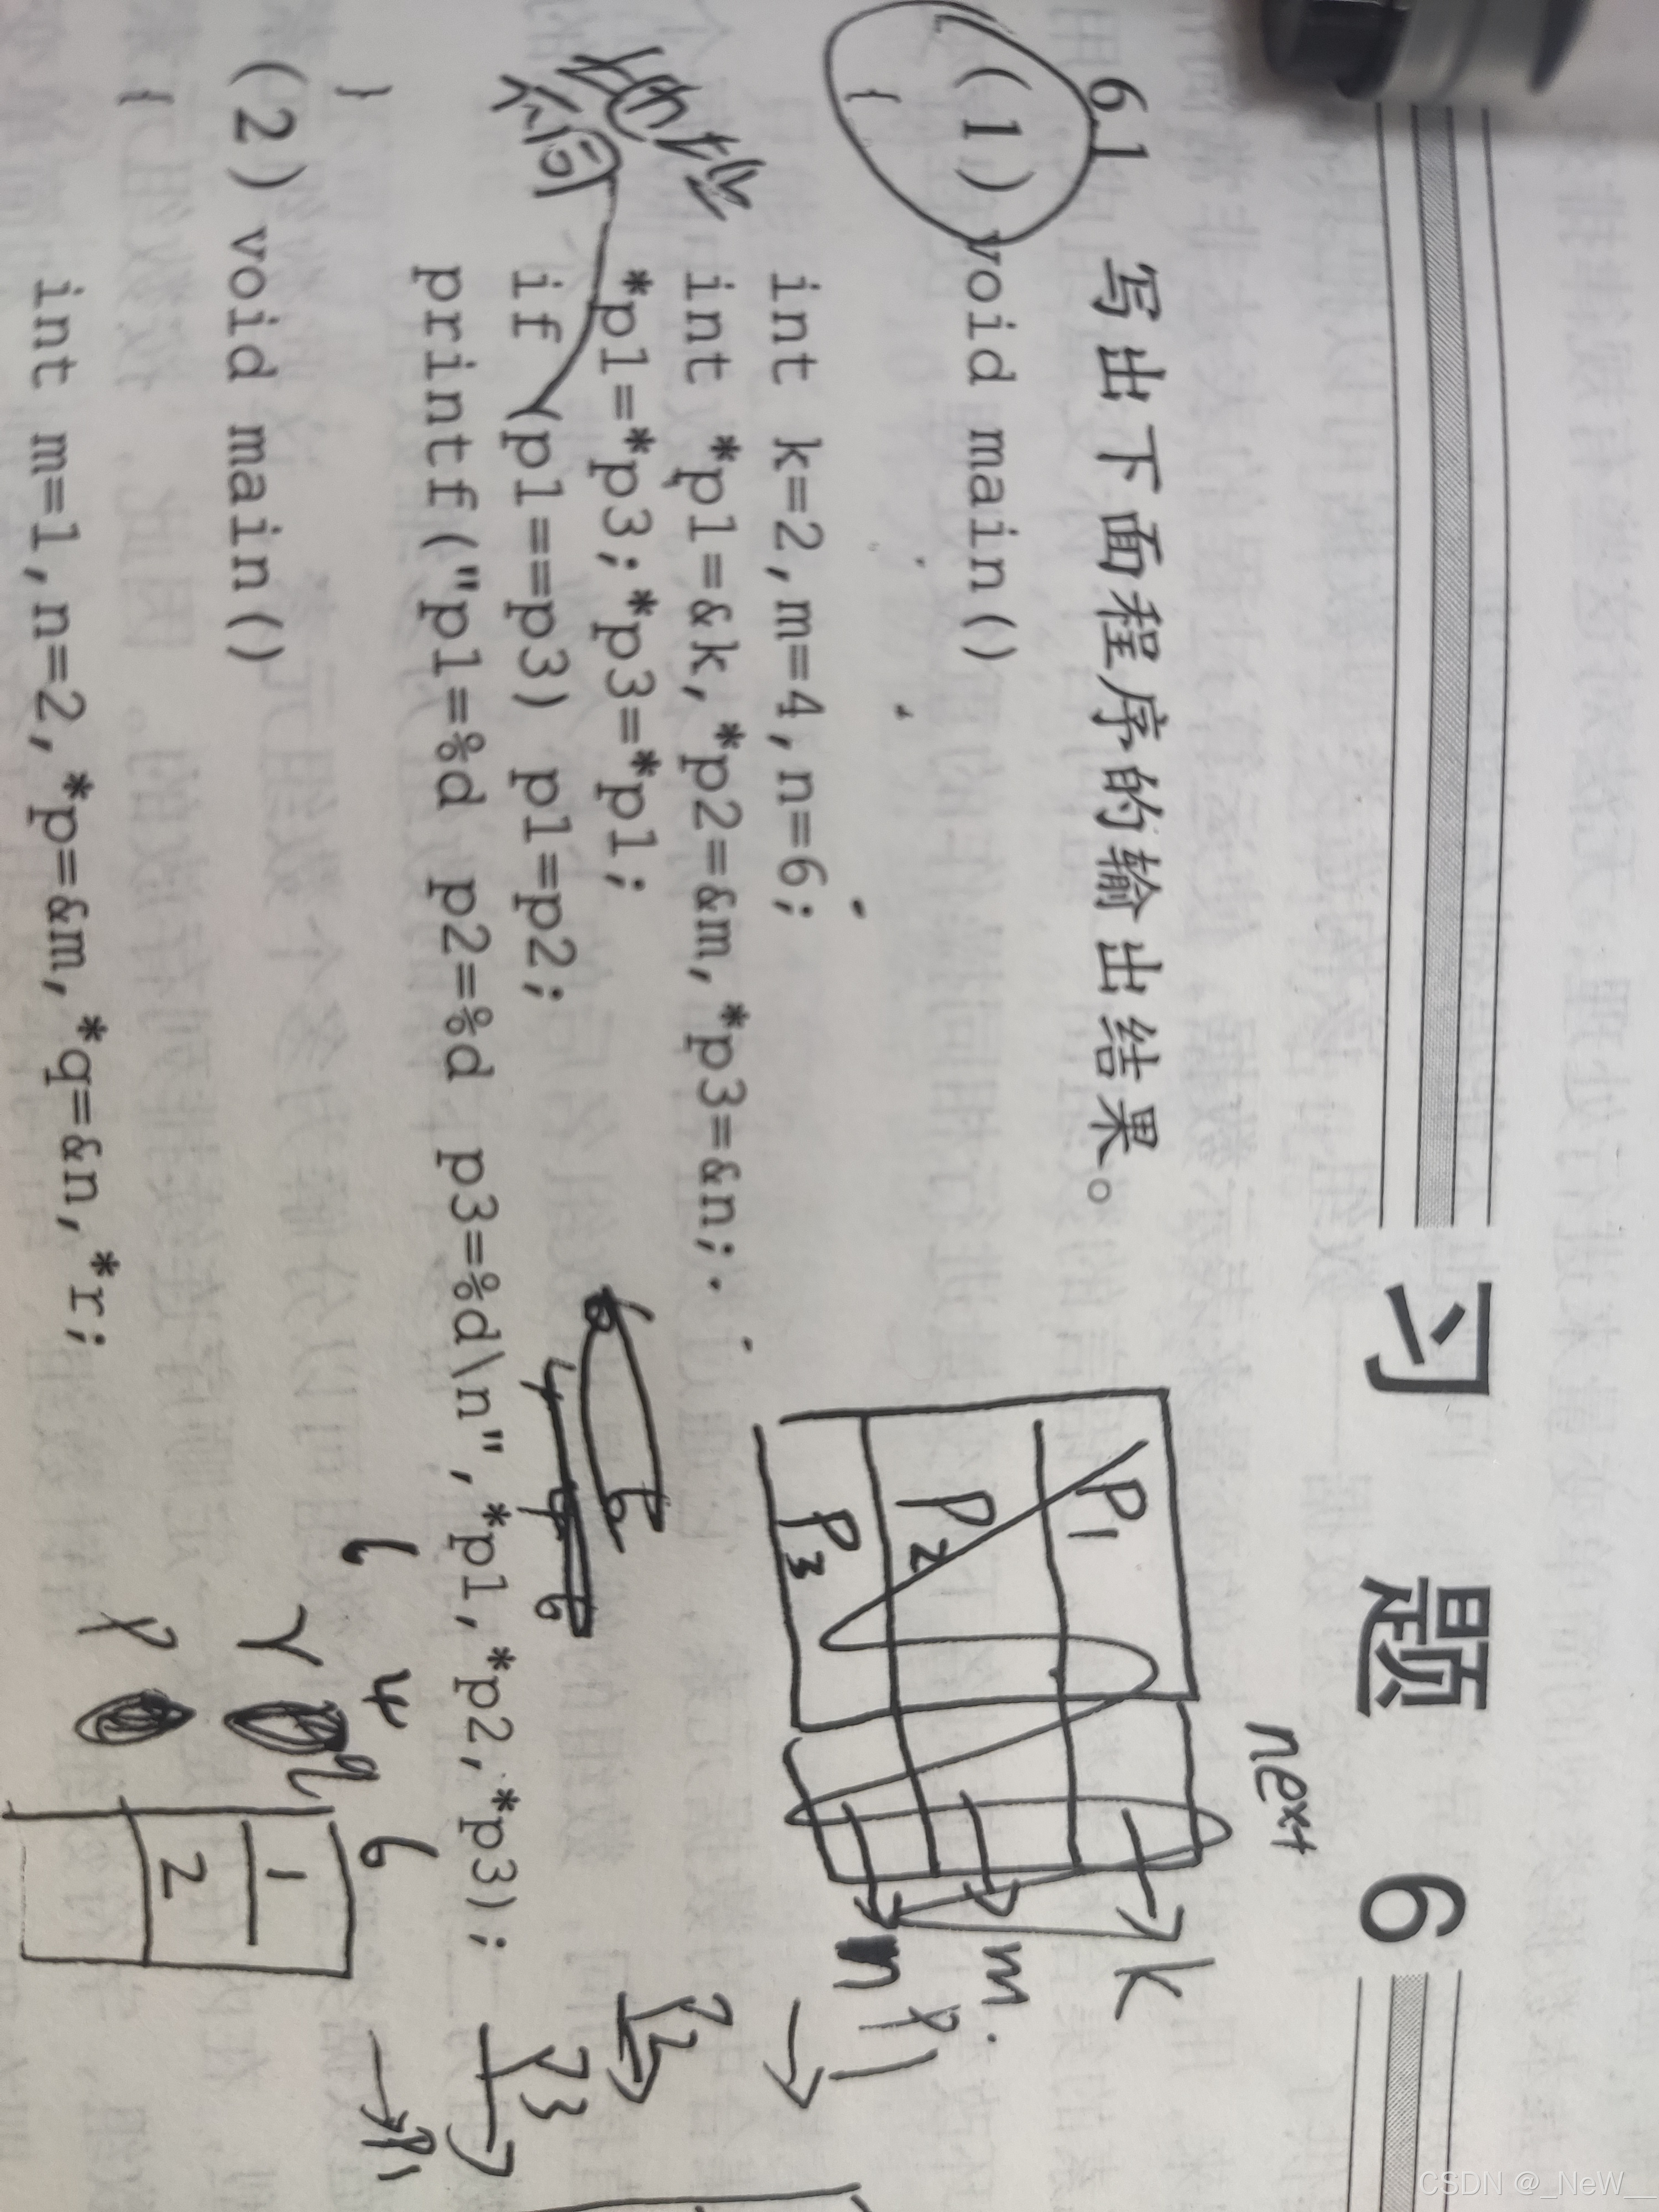 习 题 6
6.1 写出下面程序的输出结果。
(1) void main()
{
int k=2,m=4,n=6;
int *p1=&k,*p2=&m,*p3=&n;
*p1=*p3;*p3=*p1;
if (p1==p3) p1=p2;
printf("p1=%d p2=%d p3=%d\n",*p1,*p2,*p3);
}
(2) void main()
{
int m=1,n=2,*p=&m,*q=&n,*r;
next
P1
P2
P3
k
m
n
P1
6 4 6
q
1
2
P
CSDN @_NeW__